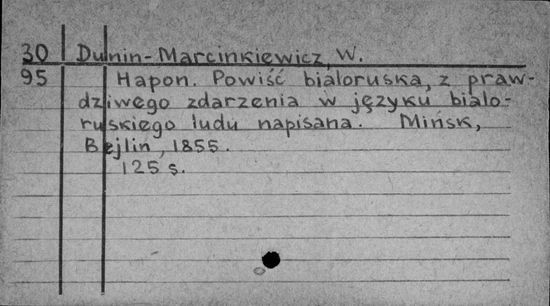 30 Dunin-Marcinkiewicz, W.
95 Hapon. Powiść białoruska, z praw-
dziwego zdarzenia w języku biało-
ruskiego ludu napisana. Mińsk,
Bejlin, 1855.
125 s.